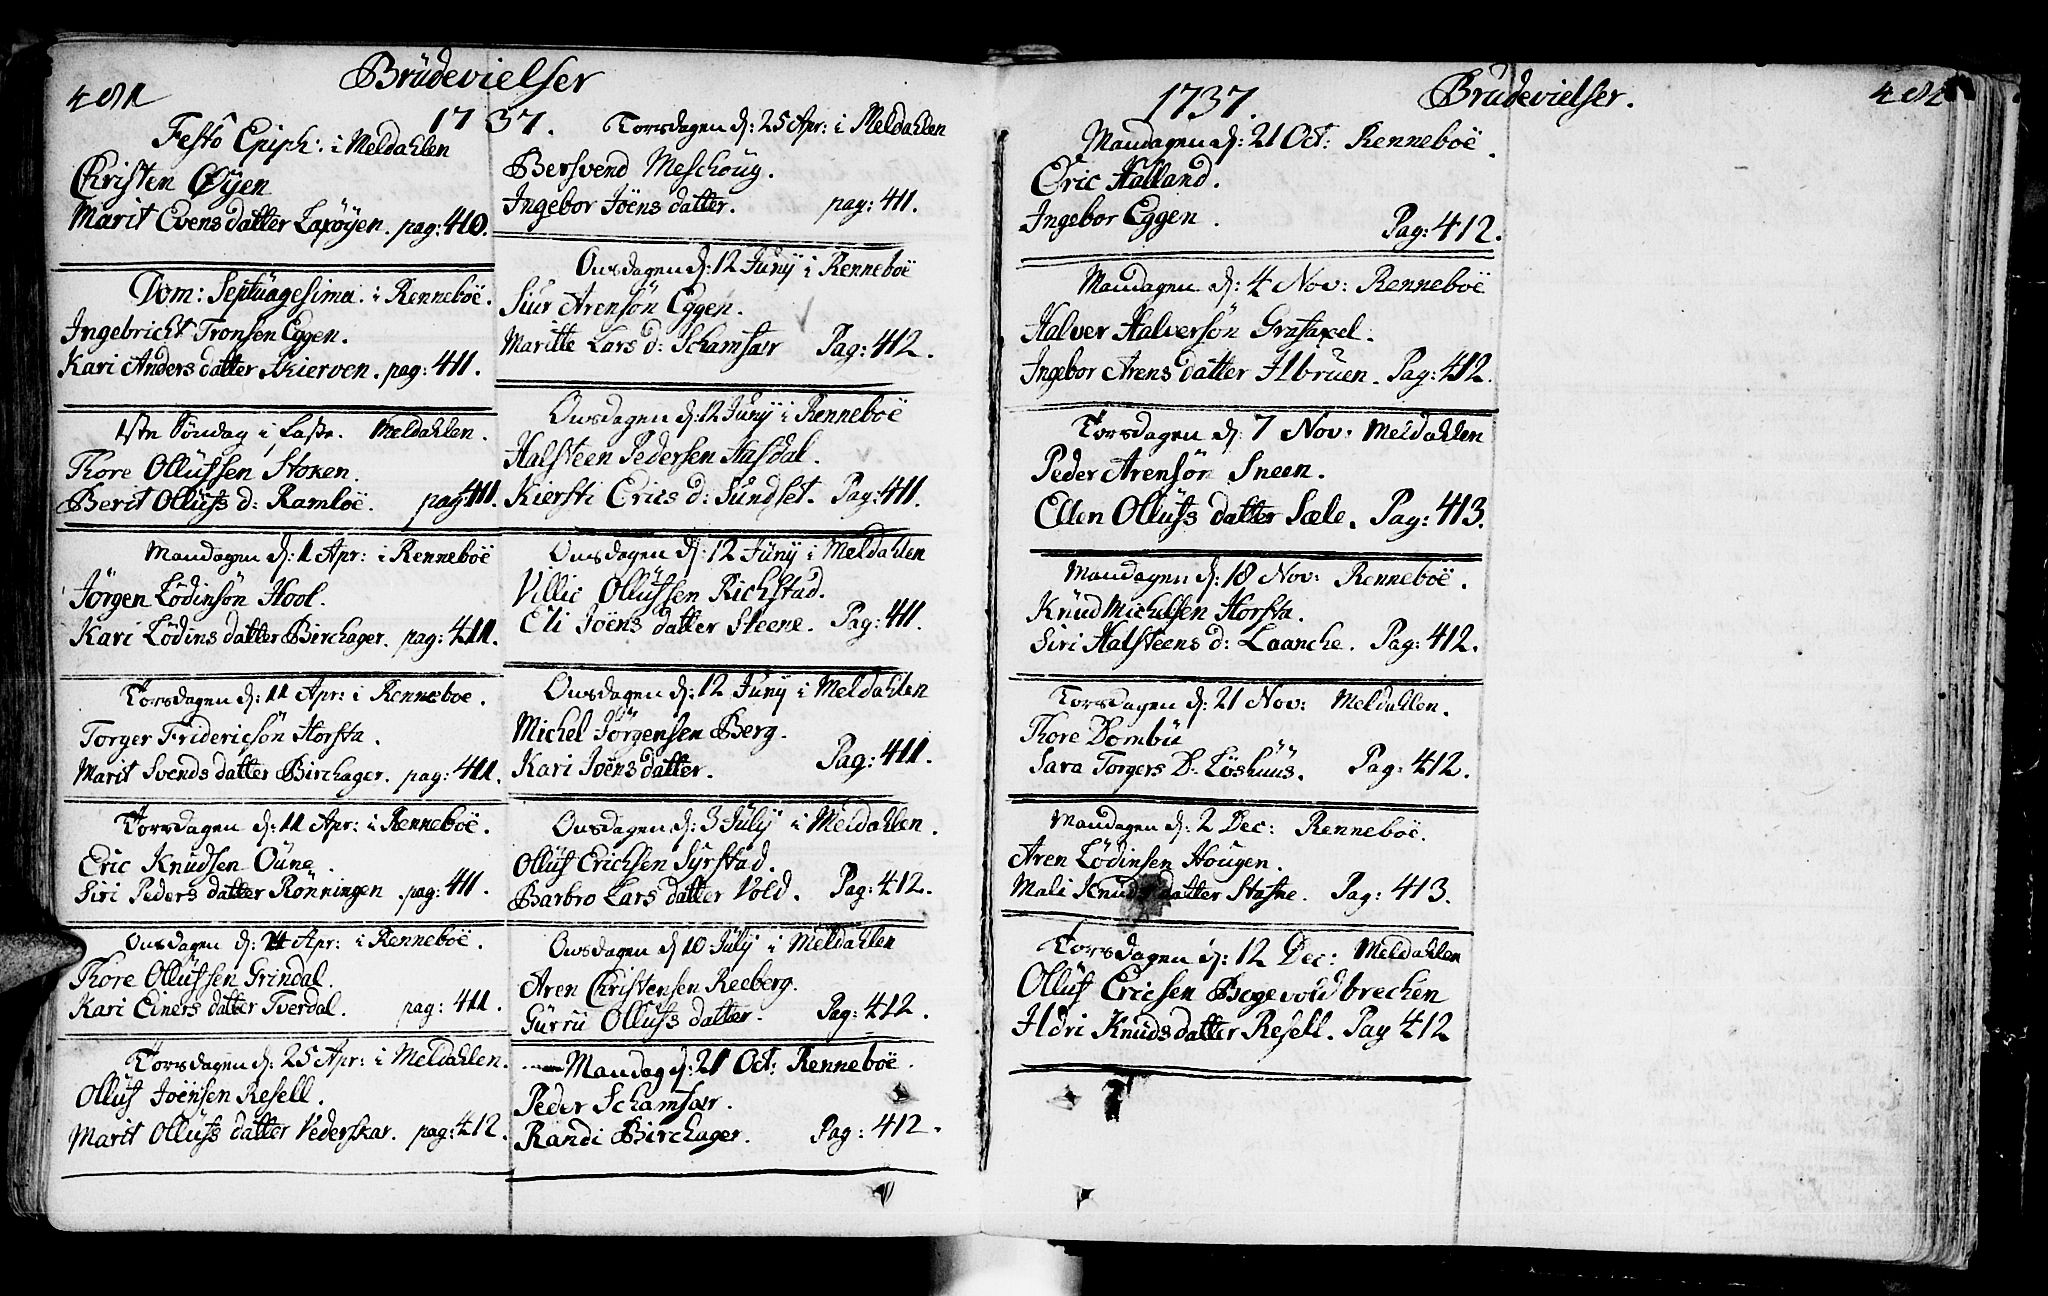 481
Brüdevielser
1737.
Festo Epiph: i Meldahlen
Christen Øÿen
Marit Evens datter Laxøÿen. pag: 410.
Dom: Septüagesima. i Renneboë.
Ingebricht Tronsen Eggen.
Kari Anders datter Skierven. pag: 411.
1ste Söndag i Faste. Meldahlen.
Thore Ollüfsen Stoken.
Berit Ollüfs d: Ramloë. pag: 411.
Mandagen d: 1 Apr: i Renneboë
Jörgen Lödinsön Hool.
Kari Lödins datter Birchager. pag: 411.
Torsdagen d: 11 Apr: i Renneboe.
Torger Fridericsön Horsta.
Marit Svends datter Birchager. pag: 411.
Torsdagen d: 11 Apr: i Renneboë.
Eric Knudsen Oüne.
Siri Peders datter Rönningen pag: 411.
Onsdagen d: Apr: i Renneboë.
Thore Ollüfsen Grindal.
Kari Einers datter Tverdal. pag: 411.
Torsdagen d: 25 Apr: i Meldahlen.
Ollüf Joënsen Resell.
Marit Ollüfs datter Vederskar. pag: 412.
Torsdagen d: 25 Apr: i Meldahlen
Bersvend Meschoüg.
Ingebor Joëns datter. pag: 411.
Onsdagen d: 12 Junÿ i Renneboë
Siur Arensön Eggen.
Maritte Lars d: Schamfær Pag: 412.
Onsdagen d: 12 Junÿ i Renneboë
Halsteen Pedersen Hasdal.
Kiersti Erics d: Sundset. Pag: 411.
Onsdagen d: 12 Jünÿ i Meldahlen
Villic Ollüfsen Richstad.
Eli Joëns datter Steene. Pag: 411.
Onsdagen d: 12 Junÿ i Meldahlen
Michel Jörgensen Berg.
Kari Joëns datter. Pag: 411.
Onsdagen d: 3 Julÿ i Meldahlen.
Ollüf Erichsen Sÿrstad.
Barbro Lars datter Vold. Pag: 412.
Onsdagen d 10 Julÿ i Meldahlen
Aren Christensen Reeberg.
Gürrü Ollüfs datter. Pag: 412.
Mandag d: 21 Oct: Renneboë.
Peder Schamfær.
Randi Birchager. Pag: 412.
1737. Brudevielser. 482
Mandagen d: 21 Oct: Renneboë.
Eric Halland.
Ingebor Eggen. Pag: 412.
Mandagen d: 4 Nov: Renneboë
Halver Halversön Grafaxel.
Ingebor Arens datter Ilbrüen. Pag: 412.
Torsdagen d: 7 Nov: Meldahlen
Peder Arensön Sneen.
Ellen Ollüfs datter Sæle. Pag: 413.
Mandagen d: 18 Nov: Renneboë.
Knüd Michelsen Horsta.
Siri Halsteens d: Laanche. Pag: 412.
Torsdagen d: 21 Nov: Meldahlen.
Thore Dombü
Sara Torgers D: Löshüüs. Pag: 412.
Mandagen d: 2 Dec: Renneboë.
Aren Lödinsen Hougen.
Mali Knuds datter Stafne. Pag: 413.
Torsdagen d: 12 Dec: Meldahlen
Ollüf Ericsen Bogevoldbrechen
Ildri Knüds datter Resell. Pag 412